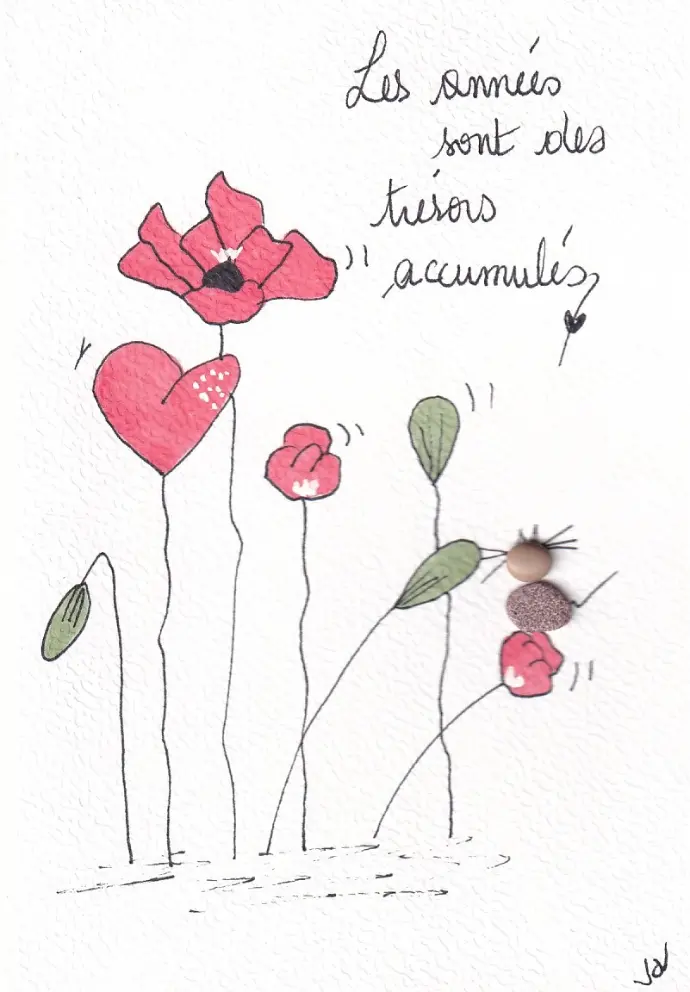 Les années
sont des
trésors
accumulés